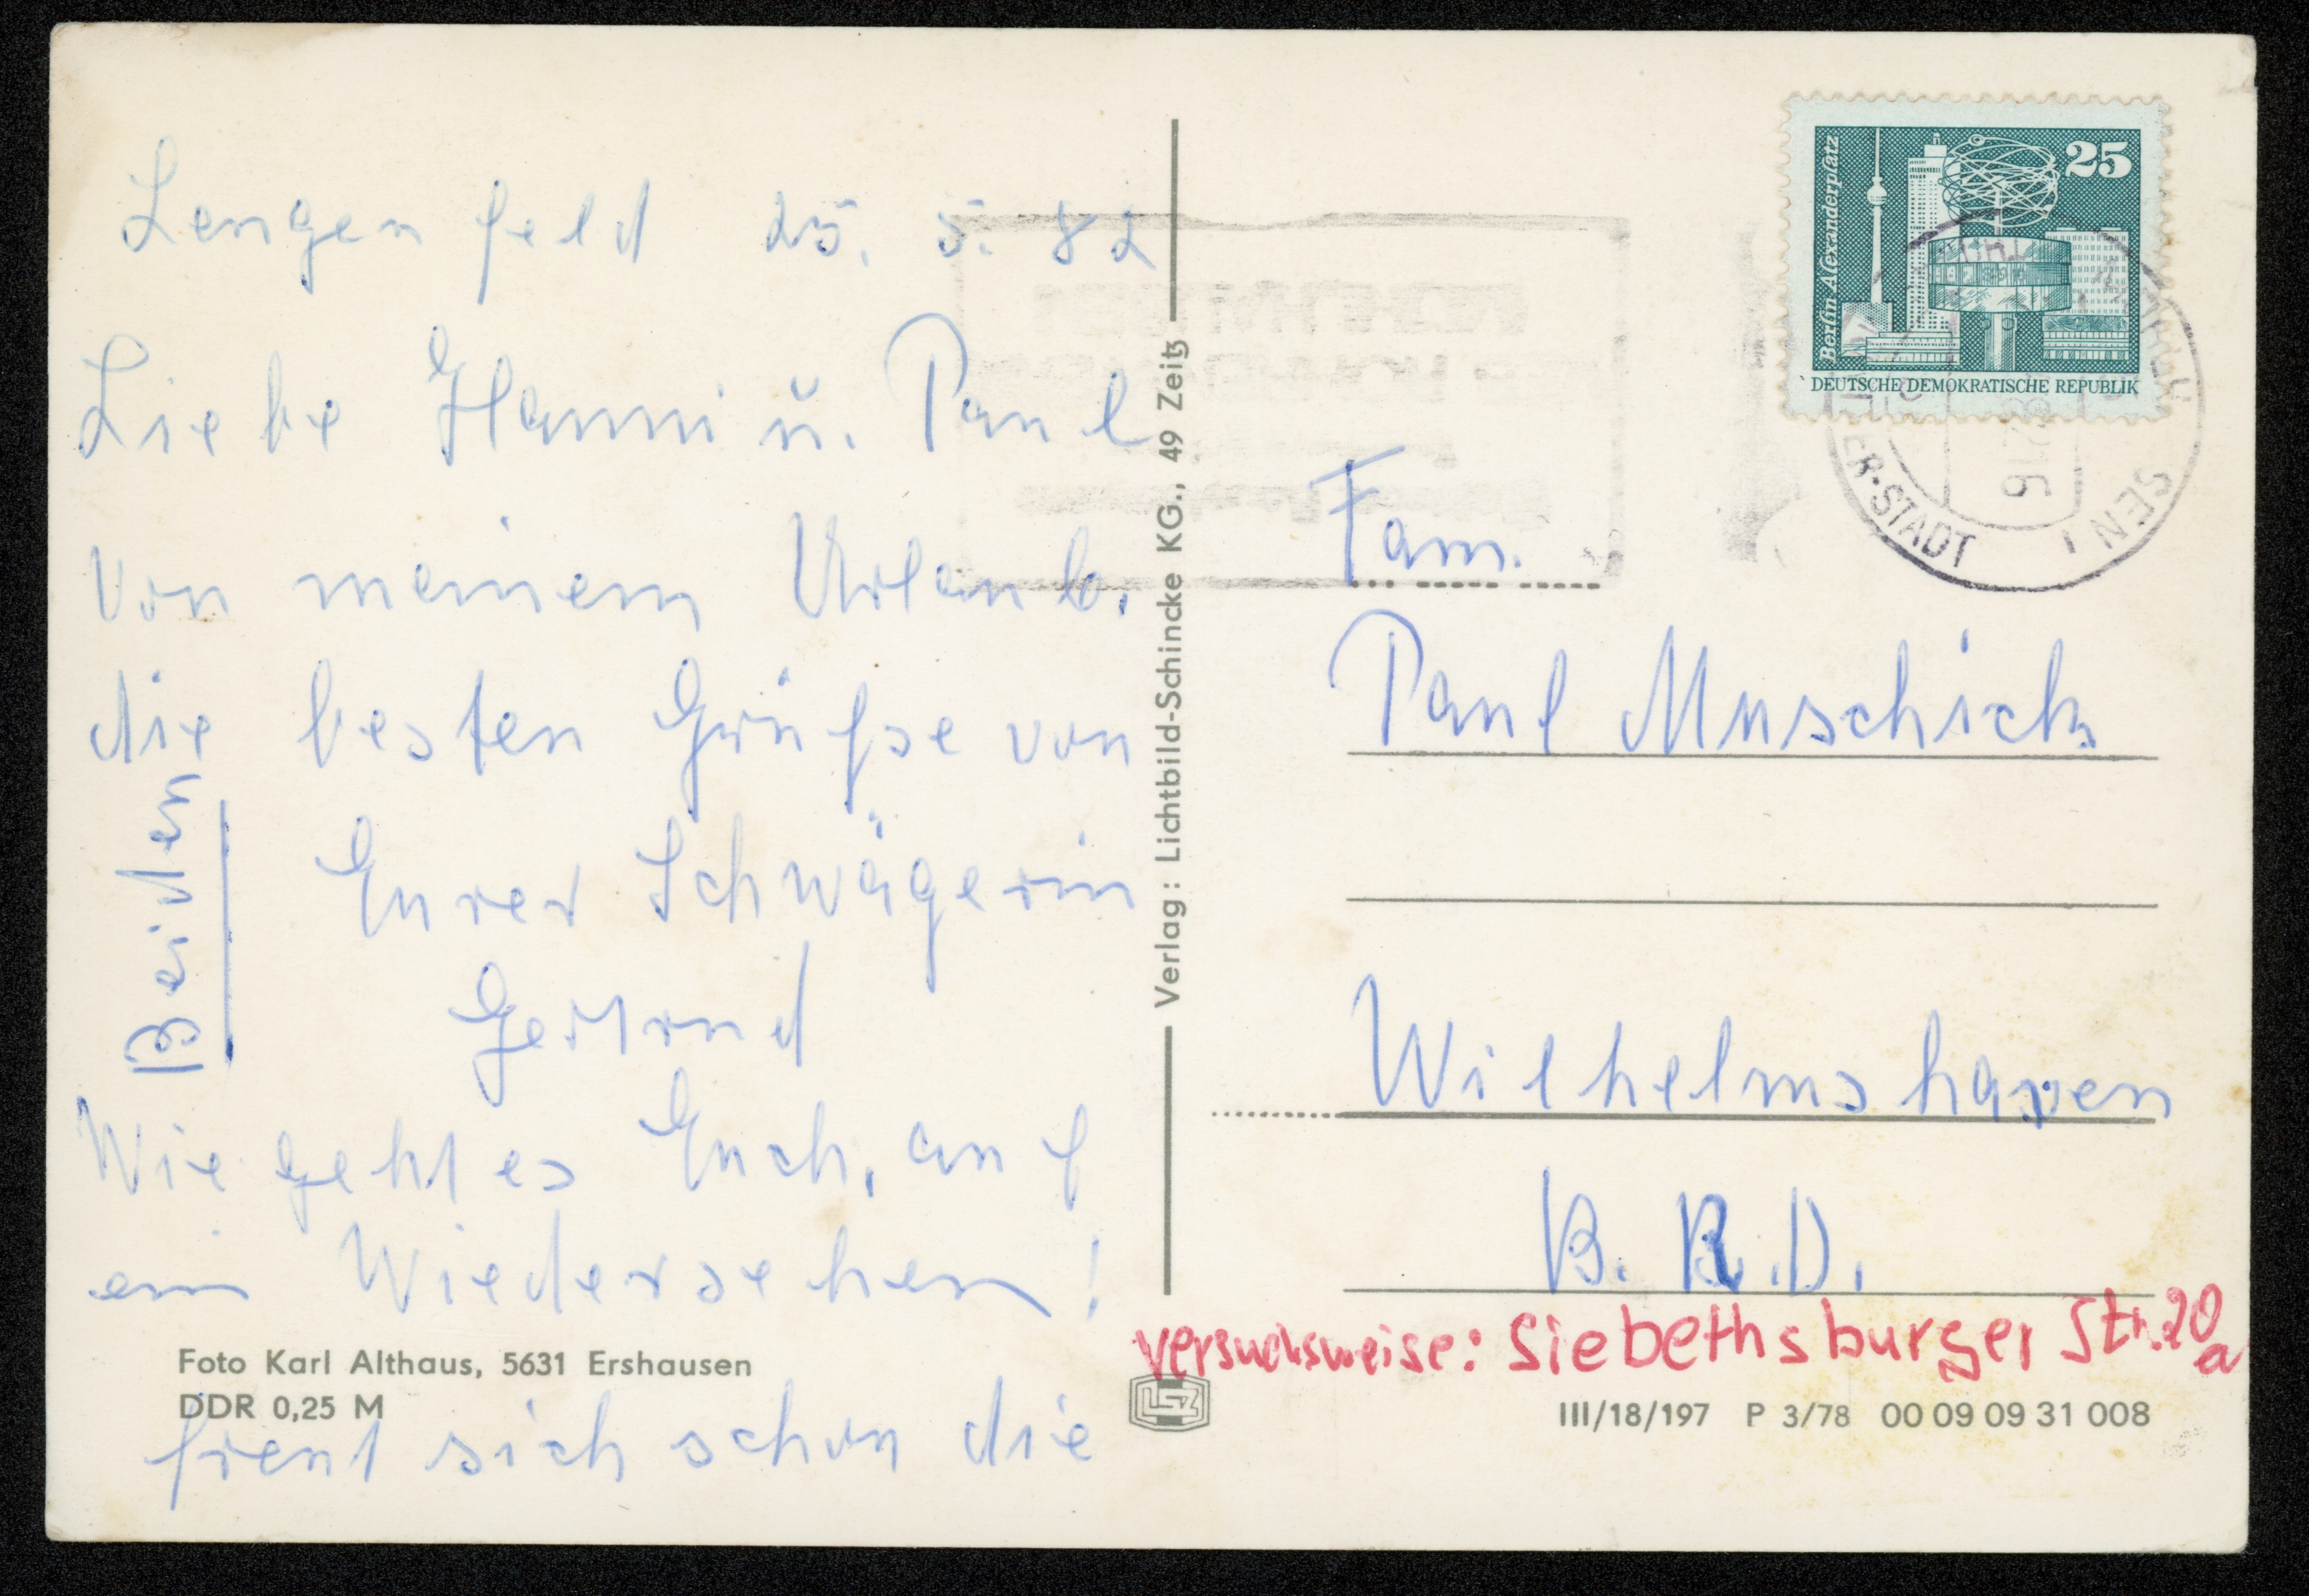 Lengenfeld 25. 5. 82
Liebe Hanni ŭ. Paul
Von meinem Urlaub.
die besten Grüße von
Eurer Schwägerin
Gertrud
Wie geht es Euch, auf
ein Wiedersehen!
freut sich schon die
Beiden
Foto Karl Althaus, 5631 Ershausen
DDR 0,25 M
Verlag: Lichtbild-Schincke KG., 49 Zeitz
LSZ
Berlin Alexanderplatz
25
DEUTSCHE DEMOKRATISCHE REPUBLIK
ER-STADT
Fam.
Paul Muschick
Wilhelmshaven
B. R. D.
versuchsweise: Siebethsburger Str. 20a
III/18/197 P 3/78 00 09 09 31 008